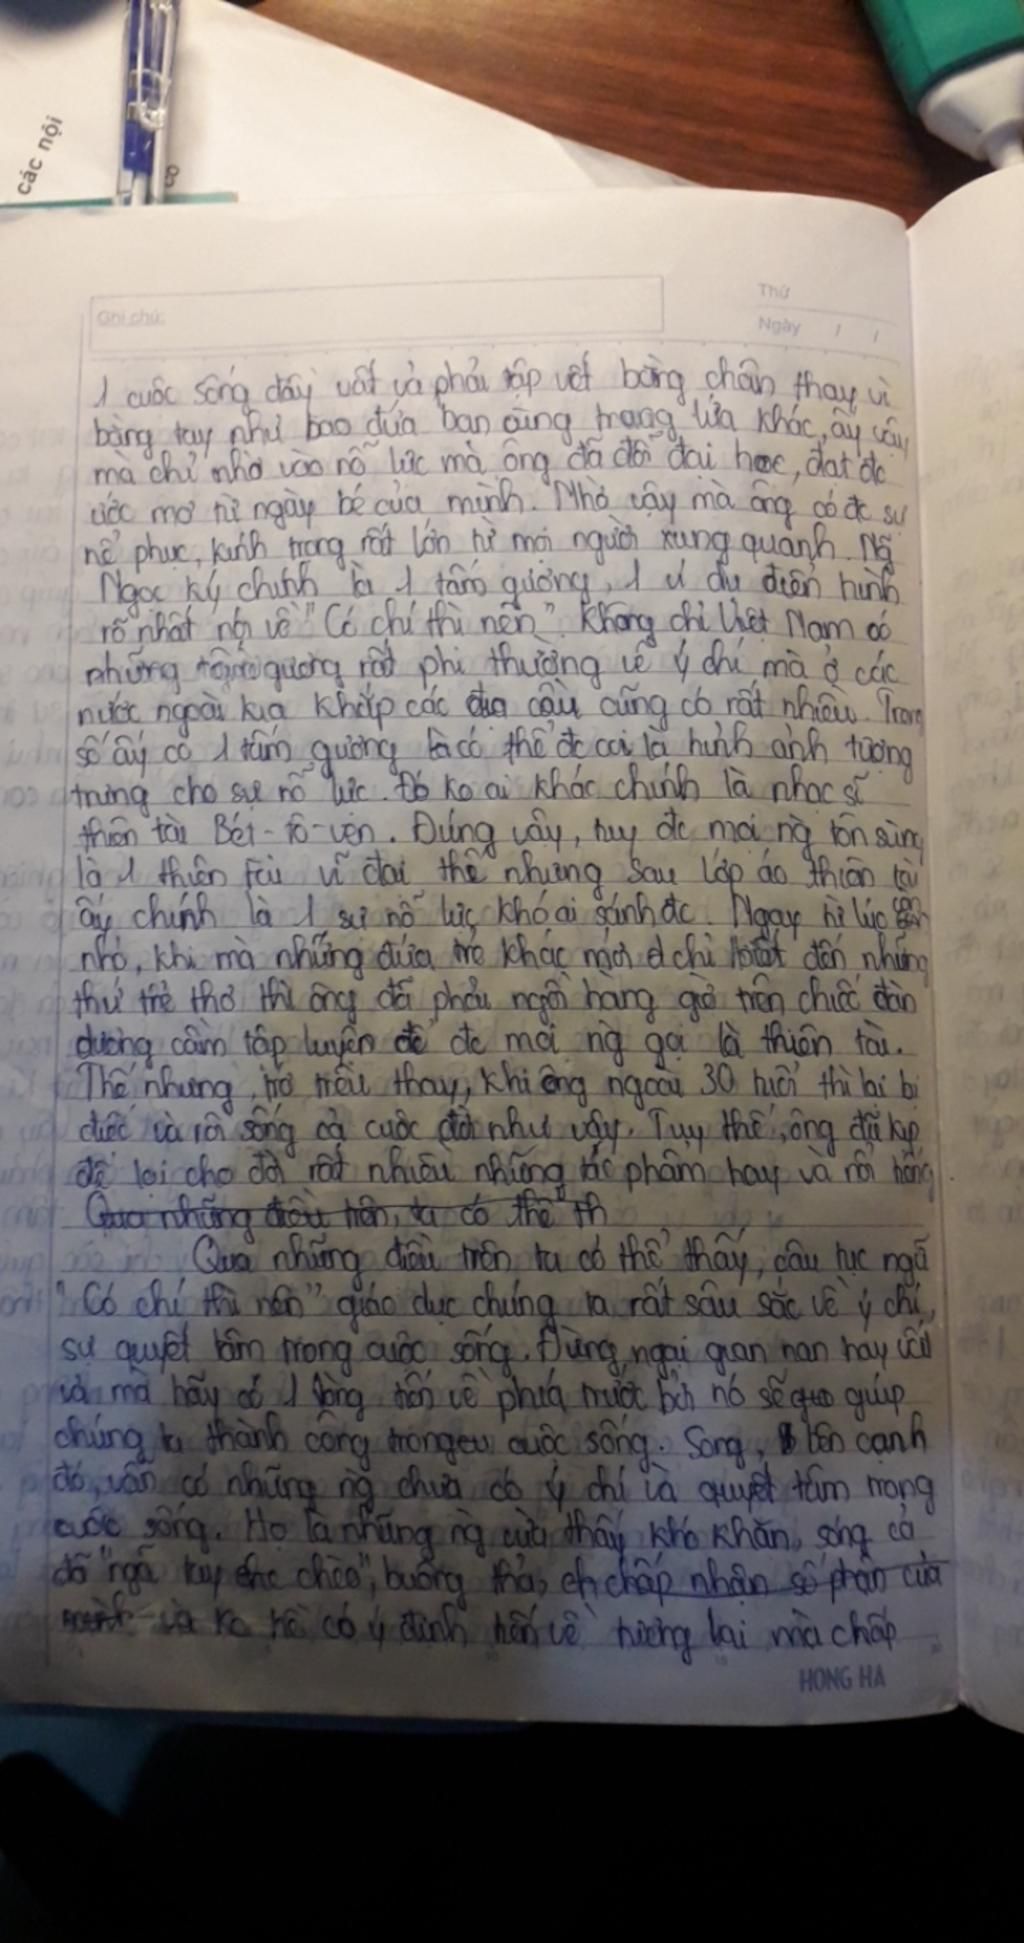 các nội
co
Ghi chú:
Thứ
Ngày / /
1 cuộc sống đầy vất vả phải tập viết bằng chân thay vì
bằng tay như bao đứa bạn cùng trang lứa khác, ấy vậy
mà chỉ nhờ vào nỗ lực mà ông đã đỗ đại học, đạt đc
ước mơ từ ngày bé của mình. Nhờ vậy mà ông có đc sự
nể phục, kính trọng rất lớn từ mọi người xung quanh. Ng̃
Ngọc Ký chính là 1 tấm gương, 1 ví dụ điển hình
rõ nhất nói về "Có chí thì nên". Không chỉ Việt Nam có
những tấm gương rất phi thường về ý chí mà ở các
nước ngoài kia khắp các địa cầu cũng có rất nhiều. Trong
số ấy có 1 tấm gương là có thể đc coi là hình ảnh tượng
trưng cho sự nỗ lực. Đó ko ai khác chính là nhạc sĩ
thiên tài Bét-tô-ven. Đúng vậy, tuy đc mọi ng̀ tôn sùng
là 1 thiên tài vĩ đại thế nhưng sau lớp áo thiên tài
ấy chính là 1 sự nỗ lực khó ai sánh đc. Ngay từ lúc
nhỏ, khi mà những đứa trẻ khác mới chỉ biết đến những
thứ trẻ thơ thì ông đã phải ngồi hàng giờ trên chiếc đàn
dương cầm tập luyện để đc mọi ng̀ gọi là thiên tài.
Thế nhưng, trớ trêu thay, khi ông ngoài 30 tuổi thì lại bị
điếc và rồi sống cả cuộc đời như vậy. Tuy thế, ông đã kịp
để lại cho đời rất nhiều những tác phẩm hay và nổi tiếng.
Qua những điều trên, ta có thể th
Qua những điều trên ta có thể thấy, câu tục ngữ
"Có chí thì nên" giáo dục chúng ta rất sâu sắc về ý chí,
sự quyết tâm trong cuộc sống. Đừng ngại gian nan hay vất
vả mà hãy có 1 lòng tiến về phía trước bởi nó sẽ giúp
chúng ta thành công trong cuộc sống. Song, bên cạnh
đó, vẫn có những ng̀ chưa có ý chí và quyết tâm trong
cuộc sống. Họ là những ng̀ vừa thấy khó khăn, sóng cả
đã "ngã tay chèo", buông thả, chấp nhận số phận của
mình và ko hề có ý định tiến về tương lai mà chấp
HONG HA